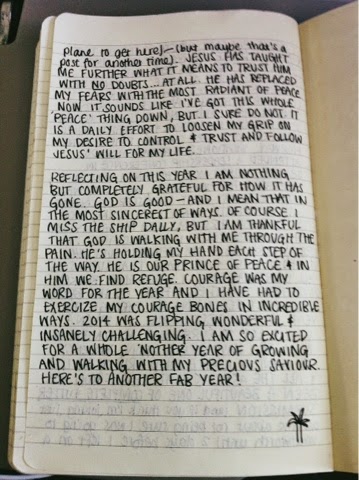 plane to get here) — (but maybe that's a
post for another time). JESUS HAS TAUGHT
ME FURTHER WHAT IT MEANS TO TRUST HIM
WITH NO DOUBTS... AT ALL. HE HAS REPLACED
MY FEARS WITH THE MOST RADIANT OF PEACE
NOW IT SOUNDS LIKE I'VE GOT THIS WHOLE
'PEACE' THING DOWN, BUT I SURE DO NOT. IT
IS A DAILY EFFORT TO LOOSEN MY GRIP ON
MY DESIRE TO CONTROL & TRUST AND FOLLOW
JESUS' WILL FOR MY LIFE.
REFLECTING ON THIS YEAR I AM NOTHING
BUT COMPLETELY GRATEFUL FOR HOW IT HAS
GONE. GOD IS GOOD — AND I MEAN THAT IN
THE MOST SINCEREST OF WAYS. OF COURSE I
MISS THE SHIP DAILY, BUT I AM THANKFUL
THAT GOD IS WALKING WITH ME THROUGH THE
PAIN. HE'S HOLDING MY HAND EACH STEP OF
THE WAY. HE IS OUR PRINCE OF PEACE & IN
HIM WE FIND REFUGE. COURAGE WAS MY
WORD FOR THE YEAR AND I HAVE HAD TO
EXERCIZE MY COURAGE BONES IN INCREDIBLE
WAYS. 2014 WAS FLIPPING WONDERFUL &
INSANELY CHALLENGING. I AM SO EXCITED
FOR A WHOLE 'NOTHER YEAR OF GROWING
AND WALKING WITH MY PRECIOUS SAVIOUR.
HERE'S TO ANOTHER FAB YEAR!